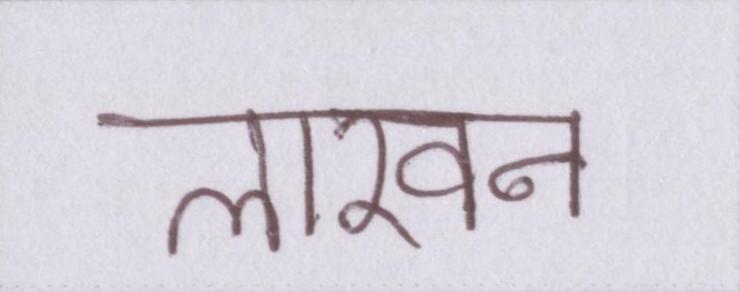 लाखन